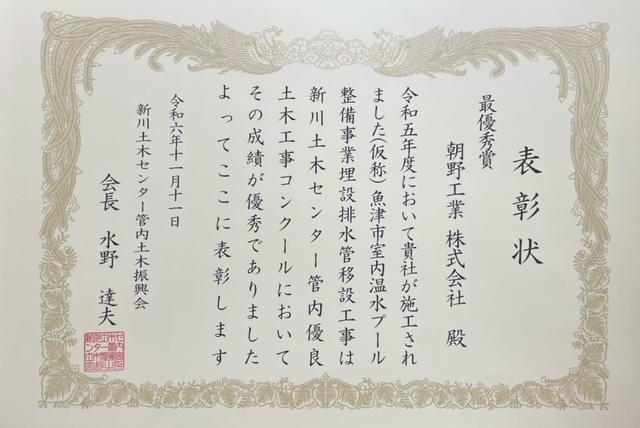 表彰状
最優秀賞
朝野工業 株式会社 殿
令和五年度において貴社が施工され
ました(仮称)魚津市室内温水プール
整備事業埋設排水管移設工事は
新川土木センター管内優良
土木工事コンクールにおいて
その成績が優秀でありました
よってここに表彰します
令和六年十一月十一日
新川土木センター管内土木振興会
会長 水野 達夫